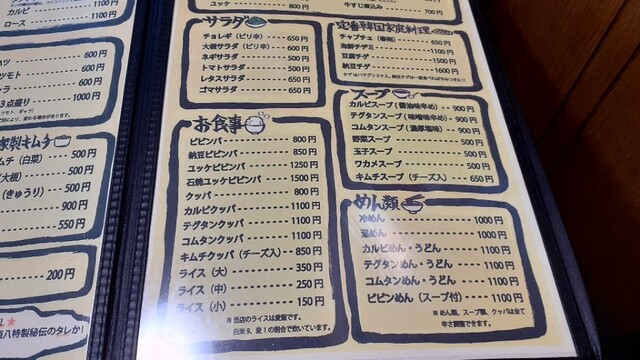 カルビ 1100円
ロース 1100円
600円
ツモト 600円
600円
3点盛り 1000円
家製キムチ
ムチ(白菜) 500円
(大根) 500円
(きゅうり) 500円
900円
550円
200円
百八特製秘伝のタレか!
ユッケ 800円
サラダ
チョレギ(ピリ辛) 650円
大根サラダ(ピリ辛) 650円
ネギサラダ 500円
トマトサラダ 650円
レタスサラダ 650円
ゴマサラダ 650円
お食事
ビビンバ 800円
納豆ビビンバ 850円
ユッケビビンバ 1250円
石焼ユッケビビンバ 1500円
クッパ 800円
カルビクッパ 1100円
テグタンクッパ 1100円
コムタンクッパ 1100円
キムチクッパ(チーズ入) 850円
ライス(大) 350円
ライス(中) 250円
ライス(小) 150円
※当店のライスは麦飯です。
白米9、麦1の割合で炊いています。
牛すじ煮込み 700円
定番韓国家庭料理
チャプチェ(春雨) 650円
海鮮チヂミ 1100円
豆腐チゲ 1500円
納豆チゲ 1500円
スープ
カルビスープ(醤油味辛め) 900円
テグタンスープ(味噌味辛め) 900円
コムタンスープ(濃厚塩味) 900円
野菜スープ 500円
玉子スープ 500円
ワカメスープ 500円
キムチスープ(チーズ入) 650円
めん類
冷めん 1000円
温めん 1000円
カルビめん・うどん 1100円
テグタンめん・うどん 1100円
コムタンめん・うどん 1100円
ビビンめん(スープ付) 1100円
※めん類、スープ類、クッパは全て
辛さ調整できます。